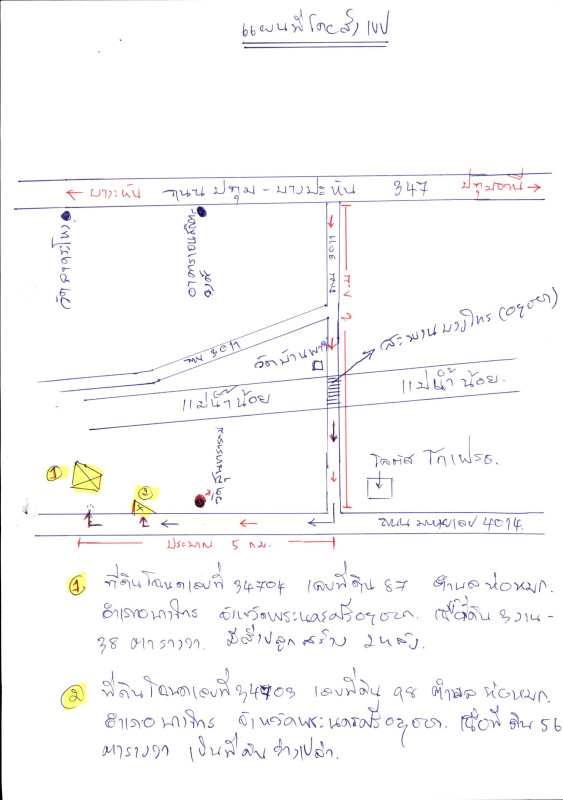 แผนที่โดยสังเขป
บางปะหัน ถนน ปทุม - บางปะหัน 347 ปทุมธานี
วัด
สะพานบางไทร (อยุธยา)
ทล 3011
วัดบ้าน
แม่น้ำน้อย
แม่น้ำน้อย.
1
2
โลตัส โกเฟรช.
ถนน 4014.
ประมาณ 5 กม.
1 ที่ดินโฉนดเลขที่ 34704 เลขที่ดิน 87 ตำบล ห่อหมก.
อำเภอบางไทร จังหวัดพระนครศรีอยุธยา. เนื้อที่ดิน 3 งาน -
38 ตารางวา. มีสิ่งปลูกสร้าง 2 หลัง.
2 ที่ดินโฉนดเลขที่ 34703 เลขที่ดิน 98 ตำบล ห่อหมก.
อำเภอบางไทร จังหวัดพระนครศรีอยุธยา. เนื้อที่ดิน 56
ตารางวา เป็นที่ดินว่างเปล่า.